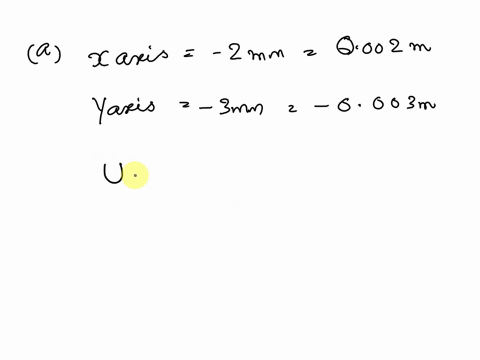 (a) x axis = -2mm = 0.002 m
Yaxis = -3mm = -0.003m
U